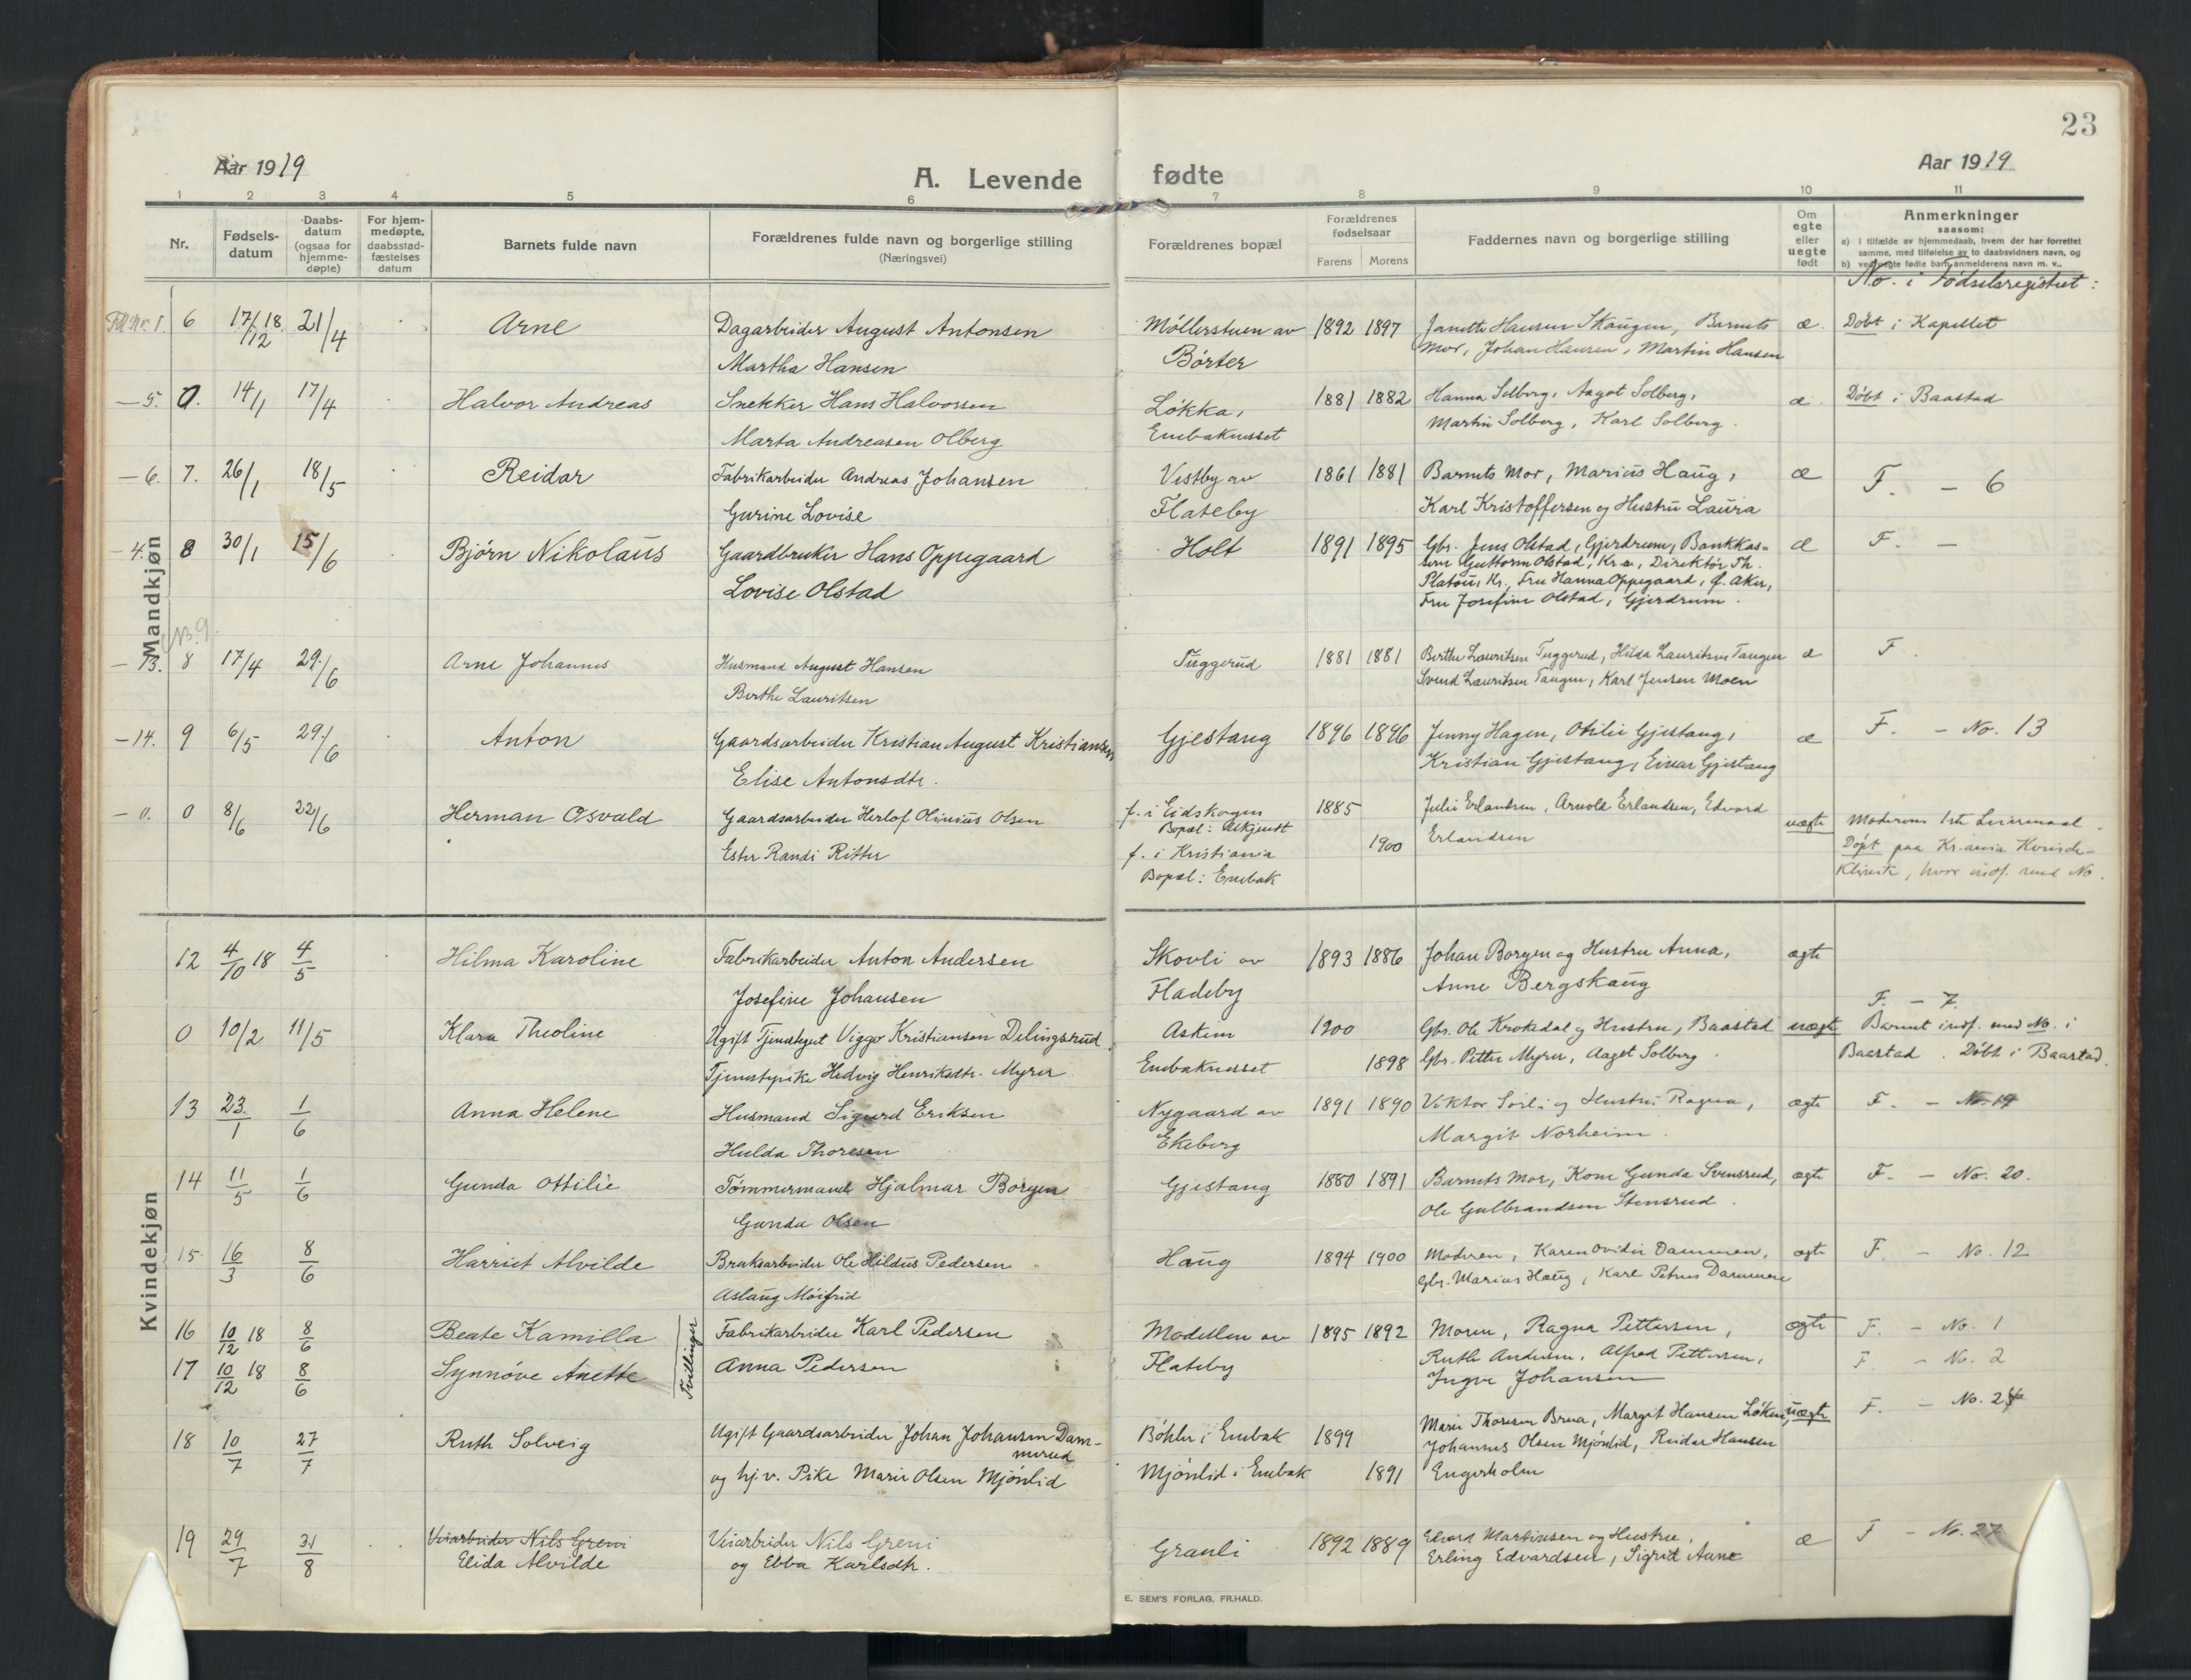 23
Aar 1919
A. Levende fødte
Aar 1919
1 2 3 4 5 6 7 8 9 10 11
Nr.
Fødsels-
datum
Daabs-
datum
(ogsaa for
hjemme-
døpte)
For hjem-
medøpte,
daabsstad-
fæstelses
datum
Barnets fulde navn
Forældrenes fulde navn og borgerlige stilling
(Næringsvei)
Forældrenes bopæl
Forældrenes
fødselsaar
Farens Morens
Faddernes navn og borgerlige stilling
Om
egte
eller
uegte
født
Anmerkninger
saasom:
a) i tilfælde av hjemmedaab, hvem der har forrettet
samme, med tilføielse av to daabsvidners navn, og
b) ved uegte fødte barn anmelderens navn m. v.
No. i Fødselsregistret:
Mandkjøn
6 17/12 18 21/4 Arne Dagarbeider August Antonsen Møllerstuen av 1892 1897 Janette Hansen Skaugen, Barnets æ. Døbt i Kapellet
Martha Hansen Børter Mor, Johan Hansen, Martin Hansen
– 5. 0. 14/1 17/4 Halvor Andreas Snekker Hans Halvorsen Løkka, 1881 1882 Hanna Solberg, Aagot Solberg, æ. Døbt i Baastad
Marta Andreasen Olberg Enebaknesset Martin Solberg, Karl Solberg.
– 6. 7. 26/1 18/5 Reidar Fabrikarbeider Andreas Johansen Vestby av 1861 1881 Barnets Mor, Marius Haug, æ F. – 6
Gurine Lovise Flateby Karl Kristoffersen og Hustru Laura
– 4. 8 30/1 15/6 Bjørn Nikolaus Gaardbruker Hans Oppegaard Holt 1891 1895 Gbr. Jens Olstad, Gjerdrum, Bankkas- æ F. –
Lovise Olstad serer Guttorm Olstad, Kr.a, Direktør Th.
Platou, Kr., Fru Hanna Oppegaard, f. Aker,
Fru Josefine Olstad, Gjerdrum.
NB. 9.
– 13. 8 17/4 29/6 Arne Johannes Husmand August Hansen Tuggerud 1881 1881 Berthe Lauritsen Tuggerud, Hilda Lauritsen Tangen æ F.
Berthe Lauritsen Svend Lauritsen Tangen, Karl Jensen Moen
– 14. 9 6/5 29/6 Anton Gaardsarbeider Kristian August Kristiansen Gjestang 1896 1896 Jenny Hagen, Otilie Gjestang, æ F. – No. 13
Elise Antonsdtr. Kristian Gjestang, Einar Gjestang
– 0. 0 8/6 22/6 Herman Osvald Gaardsarbeider Herlof Olinius Olsen f. i Eidskogen 1885 Julie Erlandsen, Arnold Erlandsen, Edvard uægte Moderens 1ste Leiermaal.
Bopæl: Ukjendt Erlandsen
Ester Randi Ritter f. i Kristiania 1900 Døpt paa Kr.ania Kvinde-
Bopæl: Enebak Klinik, hvor indf. med No.
Kvindekjøn
12 4/10 18 4/5 Hilma Karoline Fabrikarbeider Anton Andersen Skovli av 1893 1886 Johan Borgen og Hustru Anna, ægte
Josefine Johansen Fladeby Anne Bergskaug F. – 7.
0 10/2 11/5 Klara Theoline Ugift Tjenestegut Viggo Kristiansen Delingsrud Askim 1900 Gbr. Ole Krokedal og Hustru, Baastad uægte Barnet indf. med No. i
Tjenestepike Hedvig Henriksdtr. Myrer Enebaknesset 1898 Gbr. Petter Myrer, Aagot Solberg. Baastad. Døbt i Baastad.
13 23/1 1/6 Anna Helene Husmand Sigurd Eriksen Nygaard av 1891 1890 Viktor Sørli og Hustru Ragna, ægte F. – No. 19
Hulda Thoresen Ekeberg Margit Norheim.
14 11/5 1/6 Gunda Ottilie Tømmermand Hjalmar Borgen Gjestang 1880 1891 Barnets Mor, Kone Gunda Svensrud, ægte F. – No. 20.
Gunda Olsen Ole Gulbrandsen Stensrud.
15. 16/3 8/6 Harriet Alvilde Bruksarbeider Ole Hildus Pedersen Haug 1894 1900 Moderen, Karen Ovidie Dammen, ægte F. – No. 12
Aslaug Møifrid Gbr. Marius Haug, Karl Petrus Dammen
16 10/12 18 8/6 Beate Kamilla Tvillinger Fabrikarbeider Karl Pedersen Modellen av 1895 1892 Moren, Ragna Pettersen, ægte F. – No. 1
17 10/12 18 8/6 Synnøve Anette Anna Pedersen Flateby Ruth Andersen, Alfred Pettersen, F. – No. 2
Yngve Johansen
18 10/7 27/7 Ruth Solveig Ugift Gaardsarbeider Johan Johansen Dam- Bøhler i Enebak 1899 Marie Thoresen Brua, Margit Hansen Løken, uægte F. – No. 24
merud Johannes Olsen Mjønlid, Reidar Hansen
og hj.v. Pike Marie Olsen Mjønlid Mjønlid i Enebak 1891 Engerholm
19 29/7 31/8 Veiarbeider Nils Greni Veiarbeider Nils Greni Granli 1892 1889 Edvard Martinsen og Hustru, æ F – No. 27
Elida Alvilde og Ebba Karlsdtr. Erling Edvardsen, Sigrid Aune
E. SEM'S FORLAG, FR.HALD.